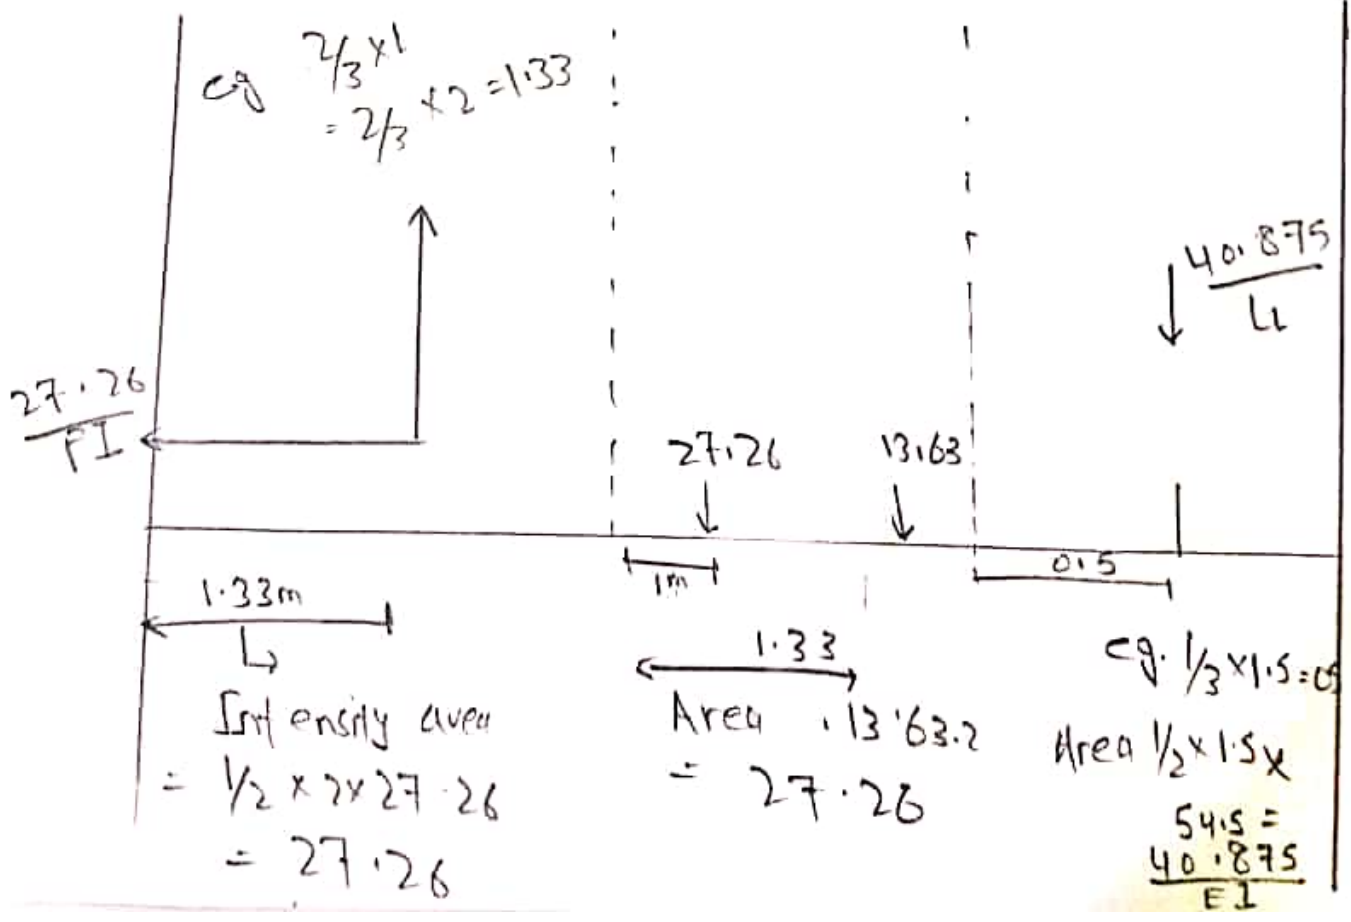 cg 2/3 x 1
= 2/3 x 2 = 1.33
40.875
LI
27.26
FI
27.26
13.63
1.33m
1m
0.5
Intensity area
= 1/2 x 2 x 27.26
= 27.26
1.33
Area .13'63.2
= 27.26
cg. 1/3 x 1.5 = 05
Area 1/2 x 1.5 x
54.5 =
40.875
EI